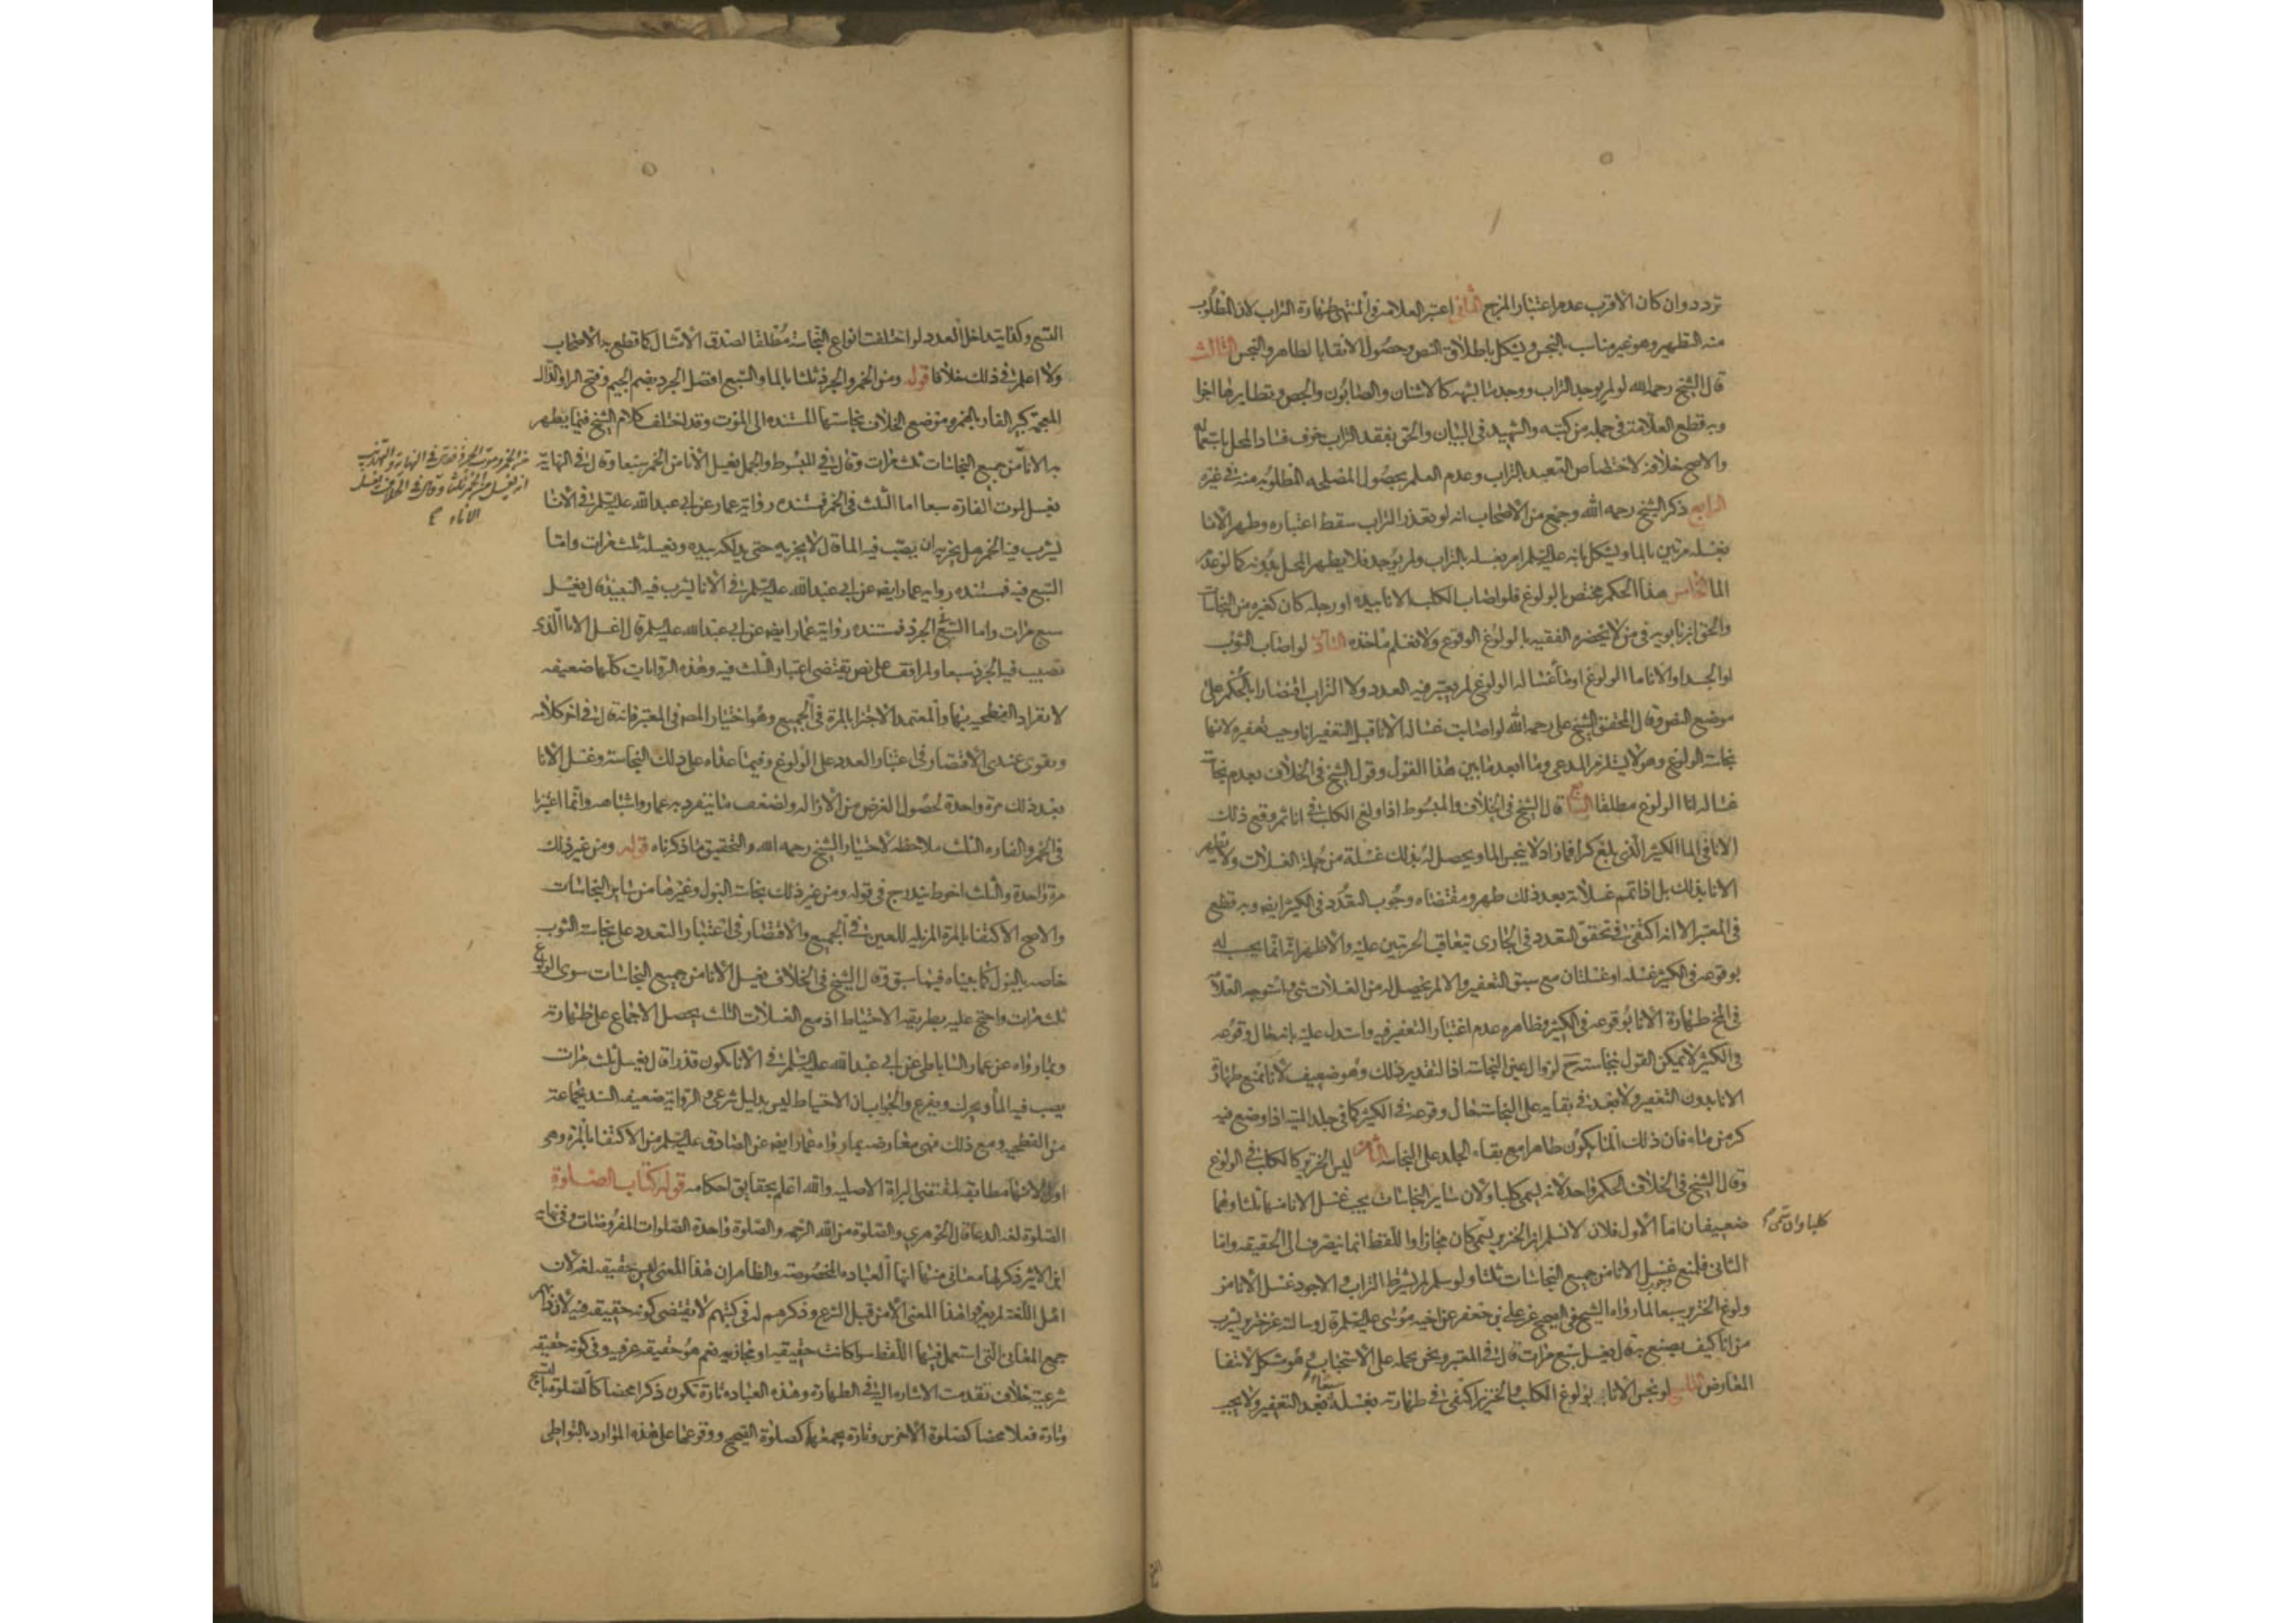 تردد وان كان الاقرب عدم اعتبار المزج الثاني اعتبر العلامة في المنتهى طهارة التراب لان المطلوب
منه التطهير وهو غير مناسب بالنجس ويشكل باطلاق النص وحصول الانقا بالطاهر والنجس الثالث
قال الشيخ رحمه الله لو لم يوجد التراب ووجد ما يشبهه كالاشنان والصابون والجص ونظايرها اجزا
وبه قطع العلامة في جملة من كتبه والشهيد في البيان والحق بفقد التراب خوف فساد المحل باستعماله
والاصح خلافه لاختصاص التعبد بالتراب وعدم العلم بحصول المصلحه المطلوبه منه في غيره
الرابع ذكر الشيخ رحمه الله وجمع من الاصحاب انه لو تعذر التراب سقط اعتباره وطهر الانا
بغسله مرتين بالما ويشكل بانه عليه السلم امر بغسله بالتراب ولم يوجد فلا يطهر المحل بدونه كما لو عدم
الما الخامس هذا الحكم مختص بالولوغ فلو اصاب الكلب الانا بيده او رجله كان كغيره من النجاسات
والحق ابن بابويه في من لا يحضره الفقيه بالولوغ الوقوع ولا نعلم ماخذه السادس لو اصاب الثوب
او الجسد او الانا ما الولوغ او ما غسالة الولوغ لم يعتبر فيه العدد ولا التراب اقتصارا بالحكم على
موضع النص وقال المحقق الشيخ علي رحمه الله لو اصابت غساله الانا قبل التعفير انا وجب تعفيره لانها
نجاسة الولوغ وهو لا يستلزم المدعى وما ابعد ما بين هذا القول وقول الشيخ في الخلاف بعدم نجاسة
غسالة انا الولوغ مطلقا السابع قال الشيخ في الخلاف والمبسوط اذا ولغ الكلب في انا ثم وقع ذلك
الانا في الما الكثير الذي بلغ كرا فما زاد لا ينجس الما ويحصل له بذلك غسلة من جملة الغسلات ولا يطهر
الانا بذلك بل اذا تمم غسلاته بعد ذلك طهر ومقتضاه وجوب التعدد في الكثير ايضه وبه قطع
في المعتبر الا انه اكتفى في تحقق التعدد في الجاري بتعاقب الجريتين عليه والاظهر انه انما يحسب له
بوقوعه في الكثير غسله او غسلتان مع سبق التعفير والا لم يحصل له من الغسلات شي واستوجه العلامة
في المخ طهارة الانا بوقوعه في الكثير وظاهره عدم اعتبار التعفير فيه واستدل عليه بانه حال وقوعه
في الكثير لا يمكن القول بنجاسته ح لزوال عين النجاسة اذا التقدير ذلك وهو ضعيف لانا نمنع طهارة
الانا بدون التعفير ولا بعد في بقايه على النجاسة حال وقوعه في الكثير كما في جلد الميتة اذا وضع فيه
كر من ماء فان ذلك الما يكون طاهرا مع بقاء الجلد على النجاسه الثامن ليس الخنزير كالكلب في الولوغ
وقال الشيخ في الخلاف الحكم واحد لانه يسمى كلبا ولان ساير النجاسات يجب غسل الانا منها ثلثا وهما
ضعيفان اما الاول فلانا لا نسلم ان الخنزير يسمى كان مجازا واللفظ انما ينصرف الى الحقيقه واما
كلبا وان سمى
الثاني فلمنع وجوب غسل الانا من جميع النجاسات ثلثا ولو سلم لم يشترط التراب والاجود غسل الانا من
ولوغ الخنزير سبعا لما رواه الشيخ في الصحيح عن علي بن جعفر عن اخيه موسى عليه السلم قال وسالته عن خنزير يشرب
من انا كيف يصنع به قال يغسل سبع مرات قال في المعتبر ونحن نحمله على الاستحباب وهو مشكل لانتفا
المعارض التاسع لو نجس الانا بولوغ الكلب والخنزير اكتفى في طهارته بغسله سبعا بعد التعفير ولا يجب
التسع وكذا يتداخل العدد لو اختلفت انواع النجاسة مطلقا لصدق الامتثال كما قطع به الاصحاب
ولا اعلم في ذلك خلافا قوله ومن الخمر والجرذ ثلثا بالما والسبع افضل الجرذ بضم الجيم وفتح الرا والذال
المعجمة كبير الفار بالجمر وموضع الخلاف نجاستها المستنده الى الموت وقد اختلف كلام الشيخ فيما يطهر
به الانا من جميع النجاسات ثلث مرات وقال في المبسوط والجمل يغسل الانا من الخمر سبعا وقال في النهاية
من الخمر وموت الجرذ فقال في النهاية والتهذيب
انه يغسل من الخمر ثلثا وقال في الخلاف يغسل
الاناء
يغسل لموت الفارة سبعا اما الثلث في الخمر فمستنده رواية عمار عن ابي عبد الله عليه السلم في الانا
يشرب فيه الخمر هل يجزيه ان يصب فيه الما قال لا يجزيه حتى يدلكه بيده ويغسله ثلث مرات واما
السبع فيه فمستنده رواية عمار ايضه عن ابي عبد الله عليه السلم في الانا يشرب فيه النبيذ قال يغسل
سبع مرات واما السبع في الجرذ فمستنده رواية عمار ايضه عن ابي عبد الله عليه السلم قال اغسل الانا الذي
تصيب فيه الجرذ سبعا ولم اقف على نص يقتضي اعتبار الثلث فيه وهذه الروايات كلها ضعيفه
لانفراد الفطحيه بها والمعتمد الاجتزا بالمرة في الجميع وهو اختيار المص في المعتبر فانه قال في اخر كلامه
ويقوى عندي الاقتصار في اعتبار العدد على الولوغ وفيما عداه على ذلك النجاسة وغسل الانا
بعد ذلك مرة واحدة لحصول الغرض من الازاله ولضعف ما ينفرد به عمار واشباهه وانما اعتبرنا
في الخمر والفاره الثلث ملاحظه لاختيار الشيخ رحمه الله والتحقيق ما ذكرناه قوله ومن غير ذلك
مرة واحدة والثلث احوط يندرج في قوله ومن غير ذلك نجاسة البول وغيرها من ساير النجاسات
والاصح الاكتفا بالمرة المزيله للعين في الجميع والاقتصار في اعتبار التعدد على نجاسة الثوب
خاصه بالبول كما بيناه فيما سبق وقال الشيخ في الخلاف يغسل الانا من جميع النجاسات سوى الولوغ
ثلث مرات واحتج عليه بطريقه الاحتياط اذ مع الغسلات الثلث يحصل الاجماع على طهارته
وبما رواه عن عمار الساباطي عن ابي عبد الله عليه السلم في الانا يكون قذرا قال يغسل ثلث مرات
يصب فيه الما ويحرك ويفرغ والجواب ان الاحتياط ليس بدليل شرعي والرواية ضعيفه السند بجماعة
من الفطحيه ومع ذلك فهى معارضه بما رواه عمار ايضه عن الصادق عليه السلم من الاكتفا بالمرة وهو
اولى لانها مطابقه لمقتضى البراة الاصليه والله اعلم بحقايق احكامه قوله كتاب الصلوة
الصلوة لغه الدعا قال الجوهري والصلوة من الله الرحمه والصلوة واحدة الصلوات المفروضات وفي نهايه
ابن الاثير ذكر لها معاني منها انها العباده المخصوصة والظاهر ان هذا المعنى ليس حقيقه لغه لان
اهل اللغة لم يعرفوا هذا المعنى الا من قبل الشرع وذكرهم له في كتبهم لا يقتضي كونه حقيقه فيه لان دابهم
جمع المعاني التي استعمل فيها اللفظ سوا كانت حقيقيه او مجازيه نعم هو حقيقه عرفيه وفي كونه حقيقه
شرعية خلاف تقدمت الاشاره اليه في الطهارة وهذه العباده تارة تكون ذكرا محضا كالصلوة بالتسبيح
وتارة فعلا محضا كصلوة الاخرس وتارة يجمعهما كصلوة الصحيح ووقوعها على هذه الموارد بالتواطى